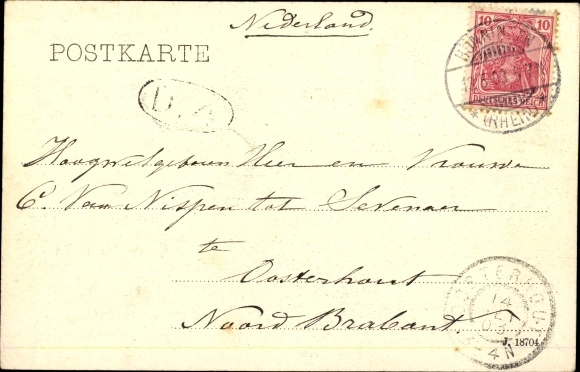 Nederland.
POSTKARTE
10 10
DEUTSCHES REICH
(RHEIN)
Hoogwelgeboren Heer en Vrouwe
C. Van Nispen tot Sevenaer
te
Oosterhout
Noord Brabant
OOSTERHOUT
14
03
4 N
J. 18704